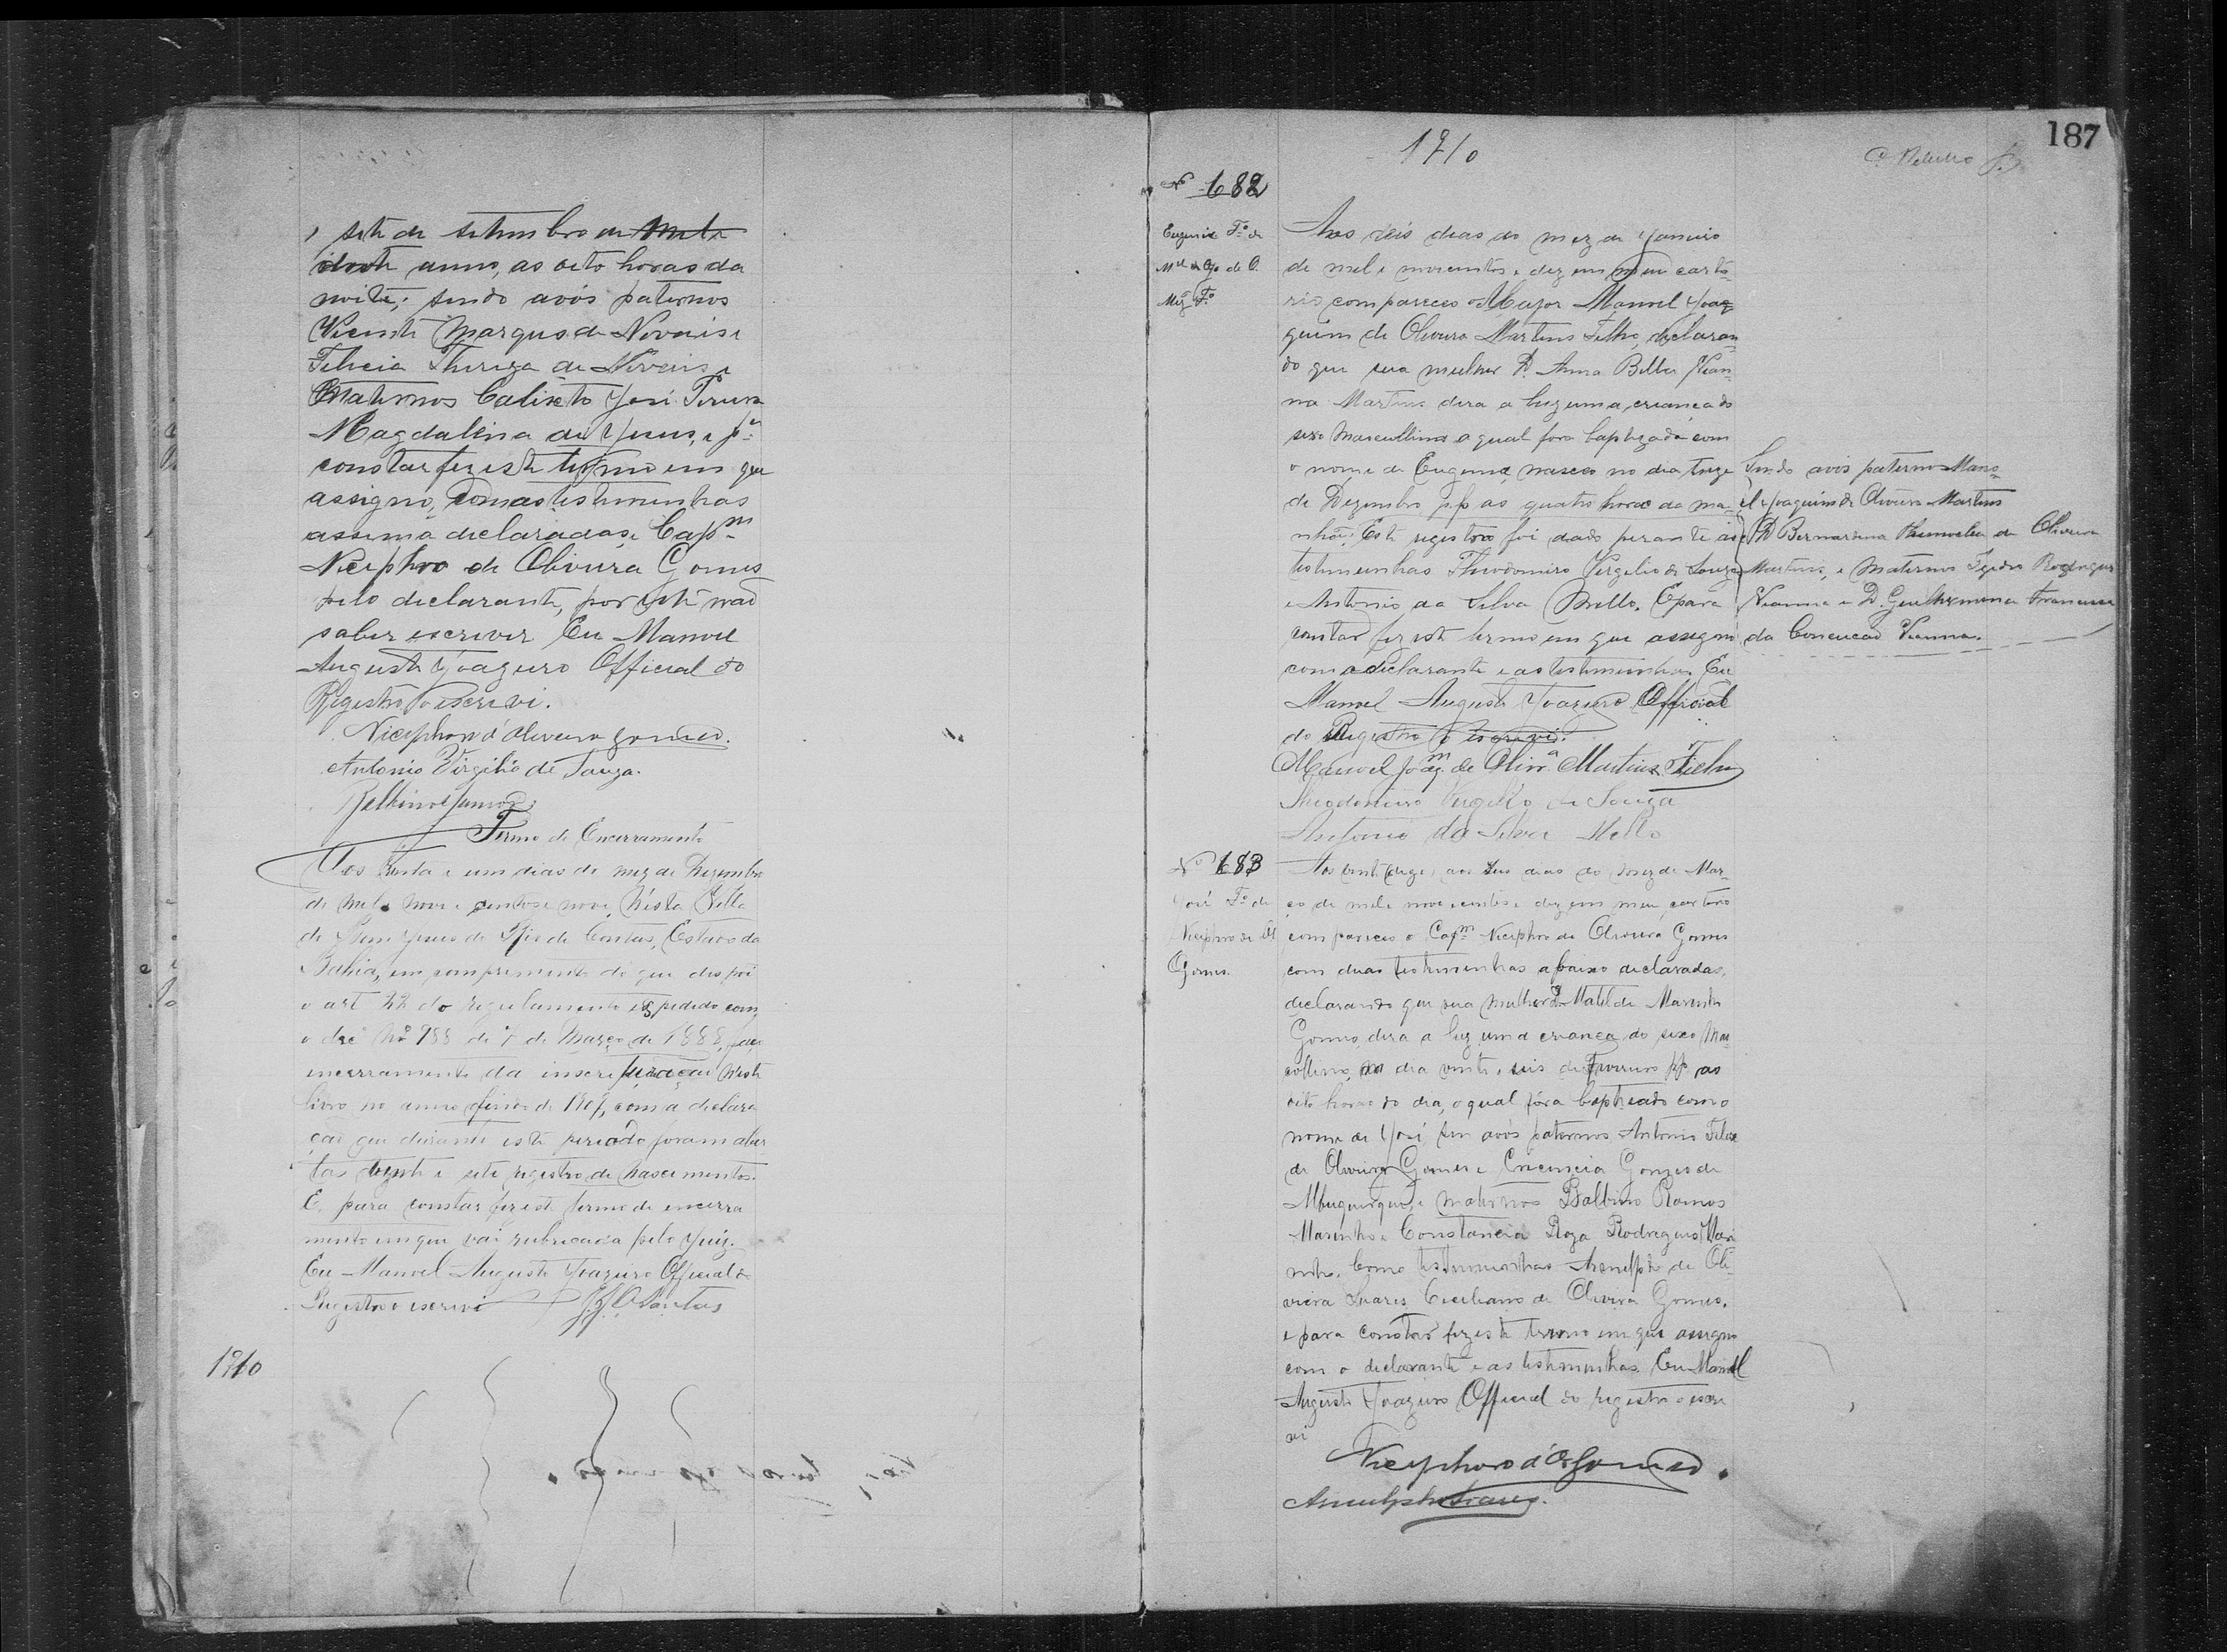 e sete de setembro de mil e
deste anno, as oito horas da
noite; sendo avós paternos
Vicente Marques de Novais e
Felicia Thereza de Novais e
Maternos Calixto José Pereira
Magdalena de Jesus, e pª
constar fiz este termo em que
assigno, com as testimunhas
assima declaradas, e Capm
Nicephoro de Oliveira Gomes
pelo declarante, por este não
saber escrever Eu Manoel
Augusto Joazeiro Official do
Registro o escrevi.
Nicephoro d'Oliveira Gomes.
Antonio Virgilio de Souza.
Termo de Encerramento
Aos trinta e um dias do mez de Dezembro
de mil e nove centos e nove, n'esta Villa
de Bom Jesus do Rio de Contas, Estado da
Bahia, em comprimento do que dispõi
o art 22 do regulamento expedido com
o dec Nº 988 de 7 de Março de 1888, faço
encerramento da inscripção neste
livro no anno findo de 1909, com a declara
ção que durante este periodo foram aber
tas vinte e sete registro de nascimentos.
E para constar fiz este termo de encerra
mento em que vai rubricada pelo Juiz.
Eu Manoel Augusto Joazeiro Official do
Registro o escrevi
1910
187
1910
Nº 682
Eugenio Fº de
Mel Jo de O.
Mez Fº
Aos seis dias do mez de Janeiro
de mil e novecentos e dez em meu carto
rio compareceo o Major Manoel Joaq
quim de Oliveira Martins Filho, declaran
do que sua mulher D. Anna Bella Vian
na Martins dera a luz uma criança do
sexo Masculino o qual fora baptizada com
o nome de Eugenio, nasceo no dia treze
de Dezembro p.p as quatro horas da ma
nhã. Este registro foi dado perante as
testimunhas Theodomiro Virgilio de Souza
e Antonio da Silva Mello. E para
constar fiz este termo em que assigno
com o declarante e as testimunhas Eu
Manoel Augusto Joazeiro Official
do Registro o escrevi.
Sendo avós paternos Mano
el Joaquim de Oliveira Martins
e D Bernardina de Oliveira
Martins, e maternos Rodrigues
Vianna e D. Guilhermina Francisca
da Conceição Vianna.
Manoel Joaqm de Olivª Martins Filho
Theodomiro Virgilio de Souza
Antonio da Silva Mello
Nº 683
José Fº de
Nicephoro de Ol
Gomes.
Aos vinte digo, aos seis dias do mez de Mar
ço de mil e nove centos e dez em meu cartorio
compareceo o Capm Nicephoro de Oliveira Gomes
com duas testimunhas abaixo declaradas,
declarando que sua mulher D. Matilde Marinho
Gomes, dera a luz uma criança do sexo Mas
collino, no dia vinte e seis de Fevereiro p.p. as
oito horas do dia, o qual fóra baptizado com o
nome de José, sem avós paternos Antonio Felix
de Oliveira Gomes e Gomes de
Albuquerque, e maternos Balbino Ramos
Marinho e Constancia Roza Rodrigues Mari
nho. Como testimunhas Arnulpho de Oli
veira Soares Ceciliano de Oliveira Gomes.
e para constar fiz este termo em que assigno
com o declarante e as testimunhas. Eu Manoel
Augusto Joazeiro Official do registro o escre
vi
Nicephoro d'O. Gomes.
Arnulpho Soares.